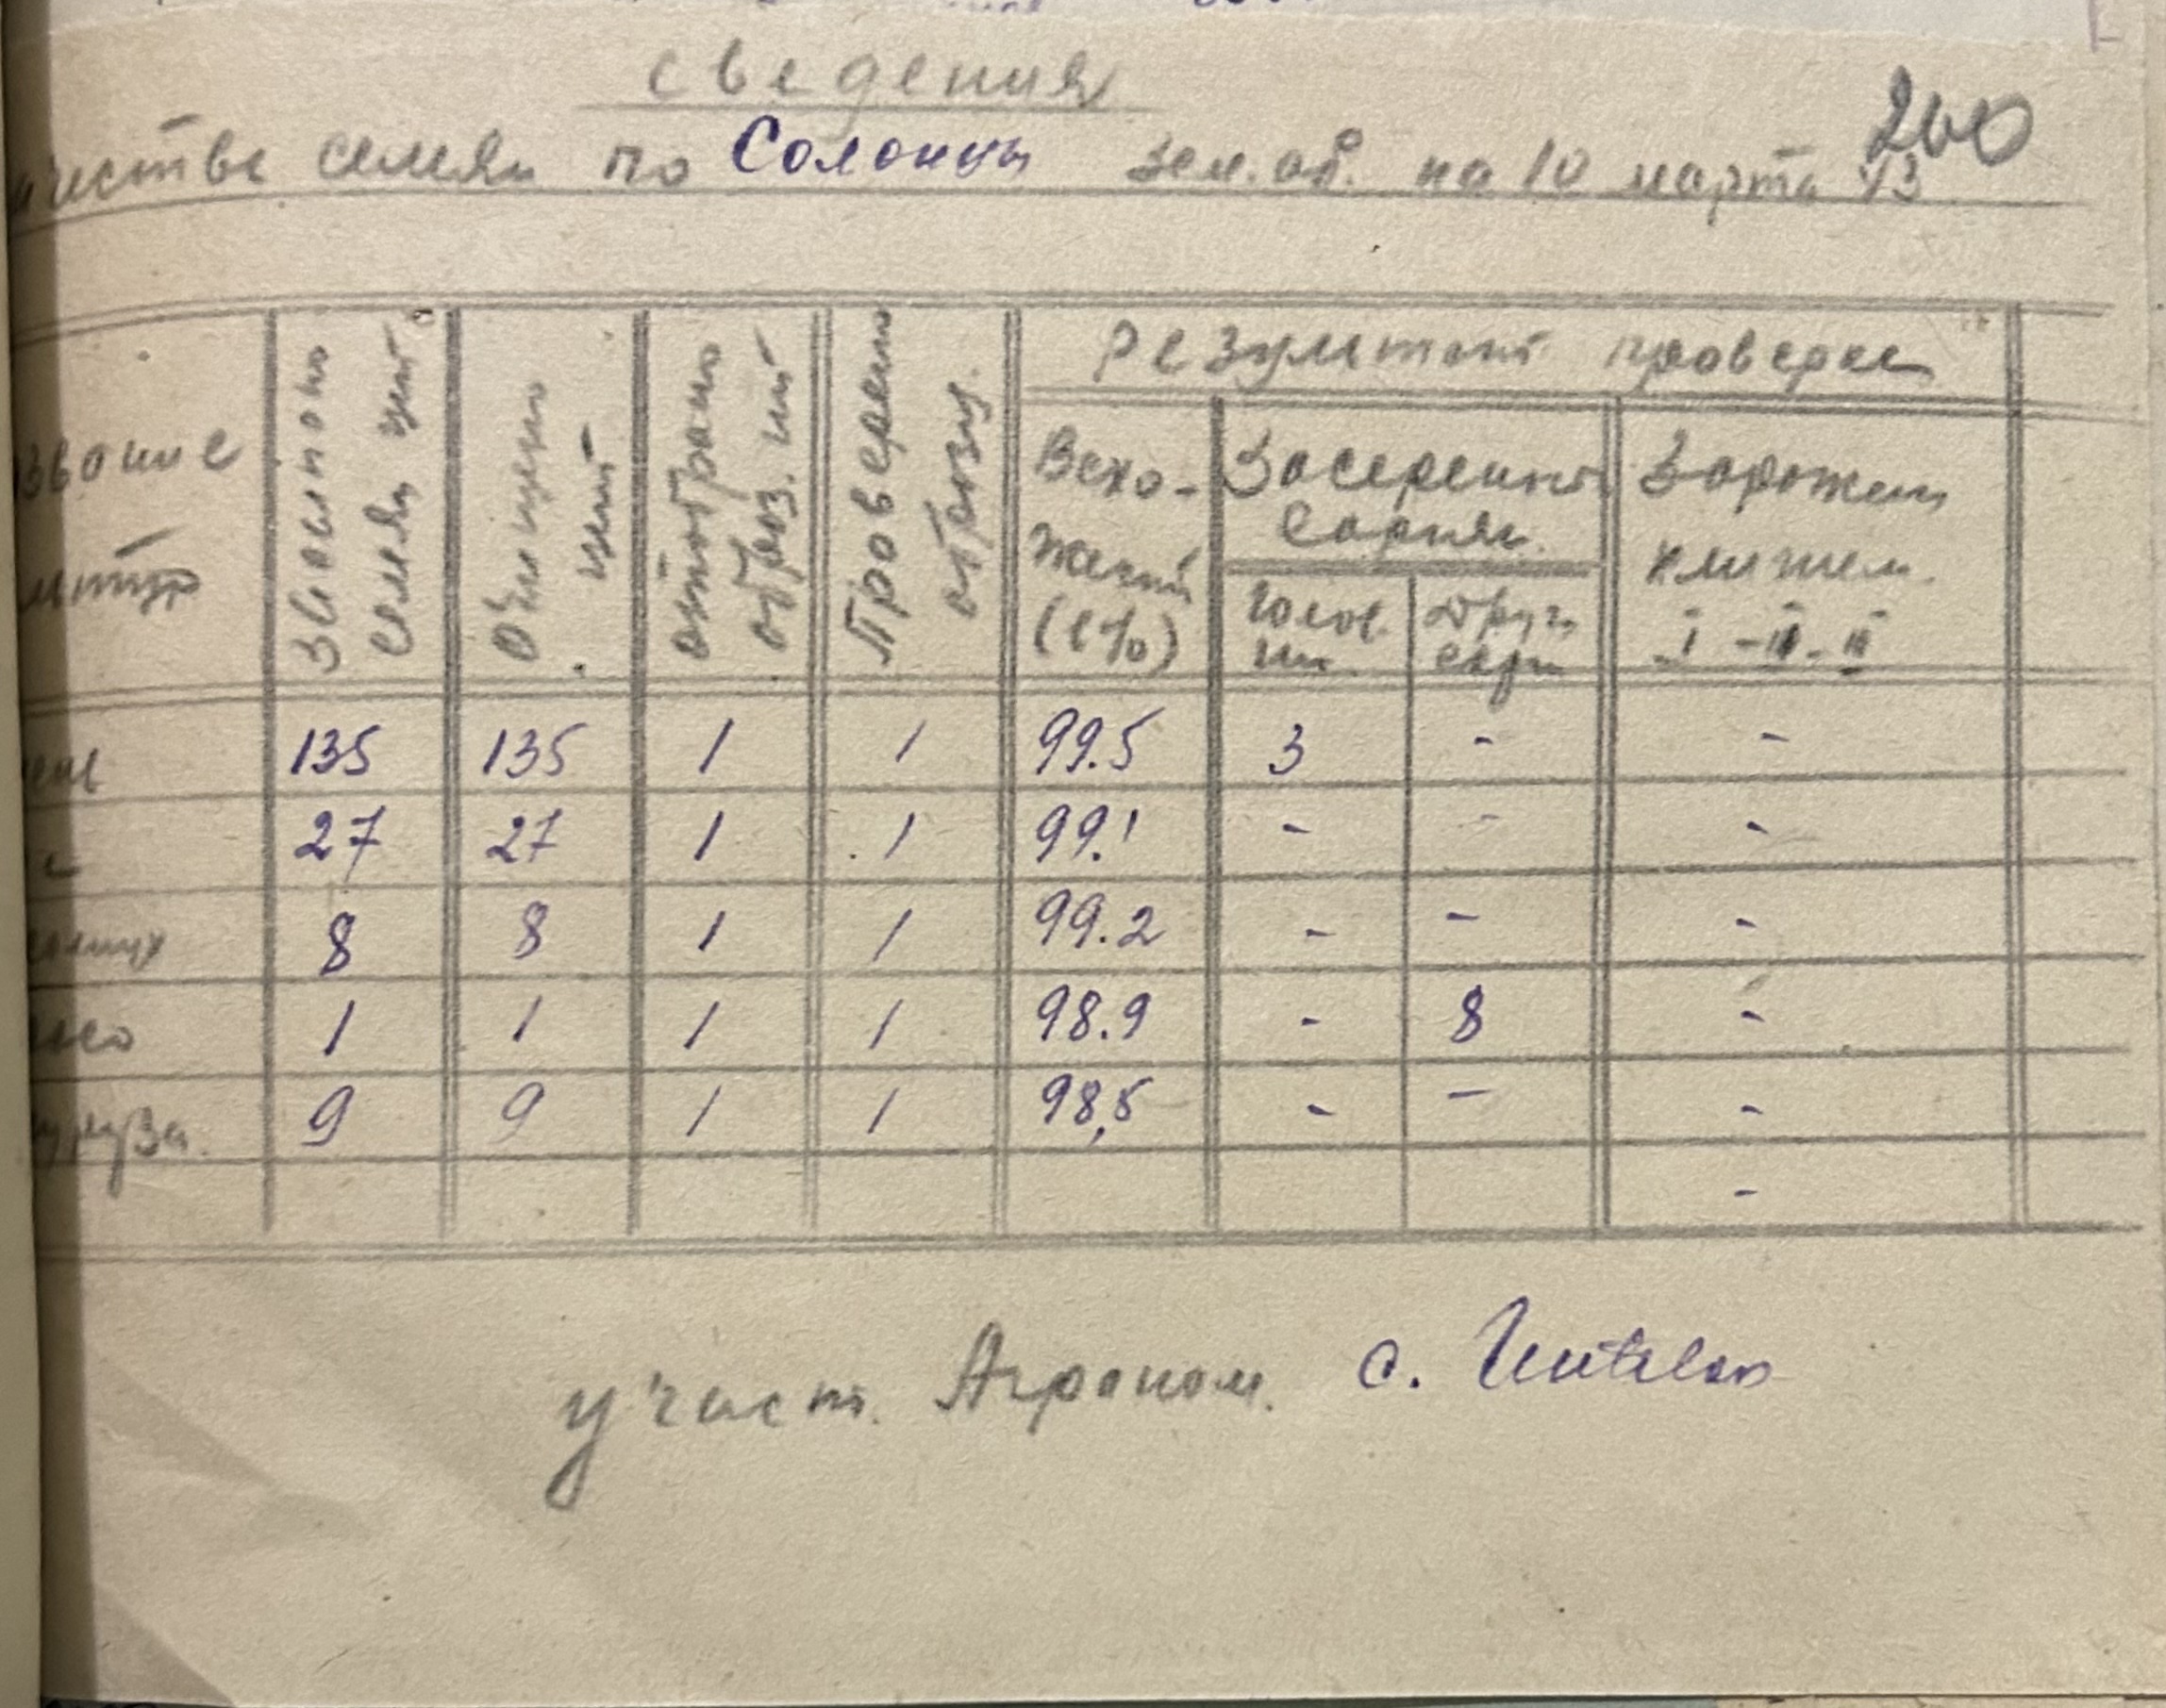 сведения
200
честве семян по Солонцы зем. об. на 10 марта 43
звание
Засыпано семян цнт.
Очищено цент
отобрано образ. шт
Проверено образц.
Результат проверки
Всхо-
жесть
(в%)
Засоренност
сорняк.
голов.
шт.
друг.
сорн
Заражен
клещем.
I - II - III
135 135 1 1 99.5 3 - -
27 27 1 1 99.1 - - -
8 8 1 1 99.2 - - -
1 1 1 1 98.9 - 8 -
куруза. 9 9 1 1 98,5 - - -
-
участ. Агроном. с.